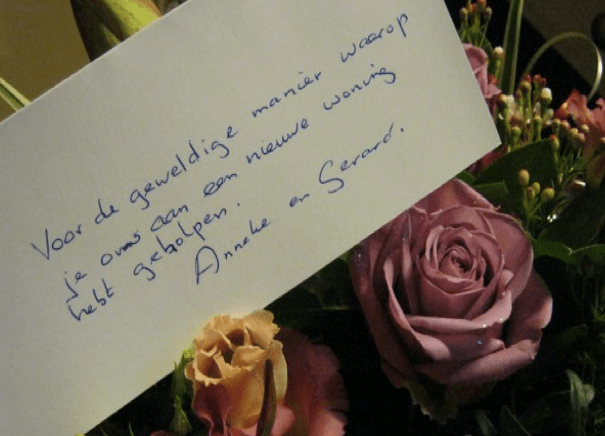 Voor de geweldige manier waarop
je ons aan een nieuwe woning
hebt geholpen.
Anneke en Gerard.